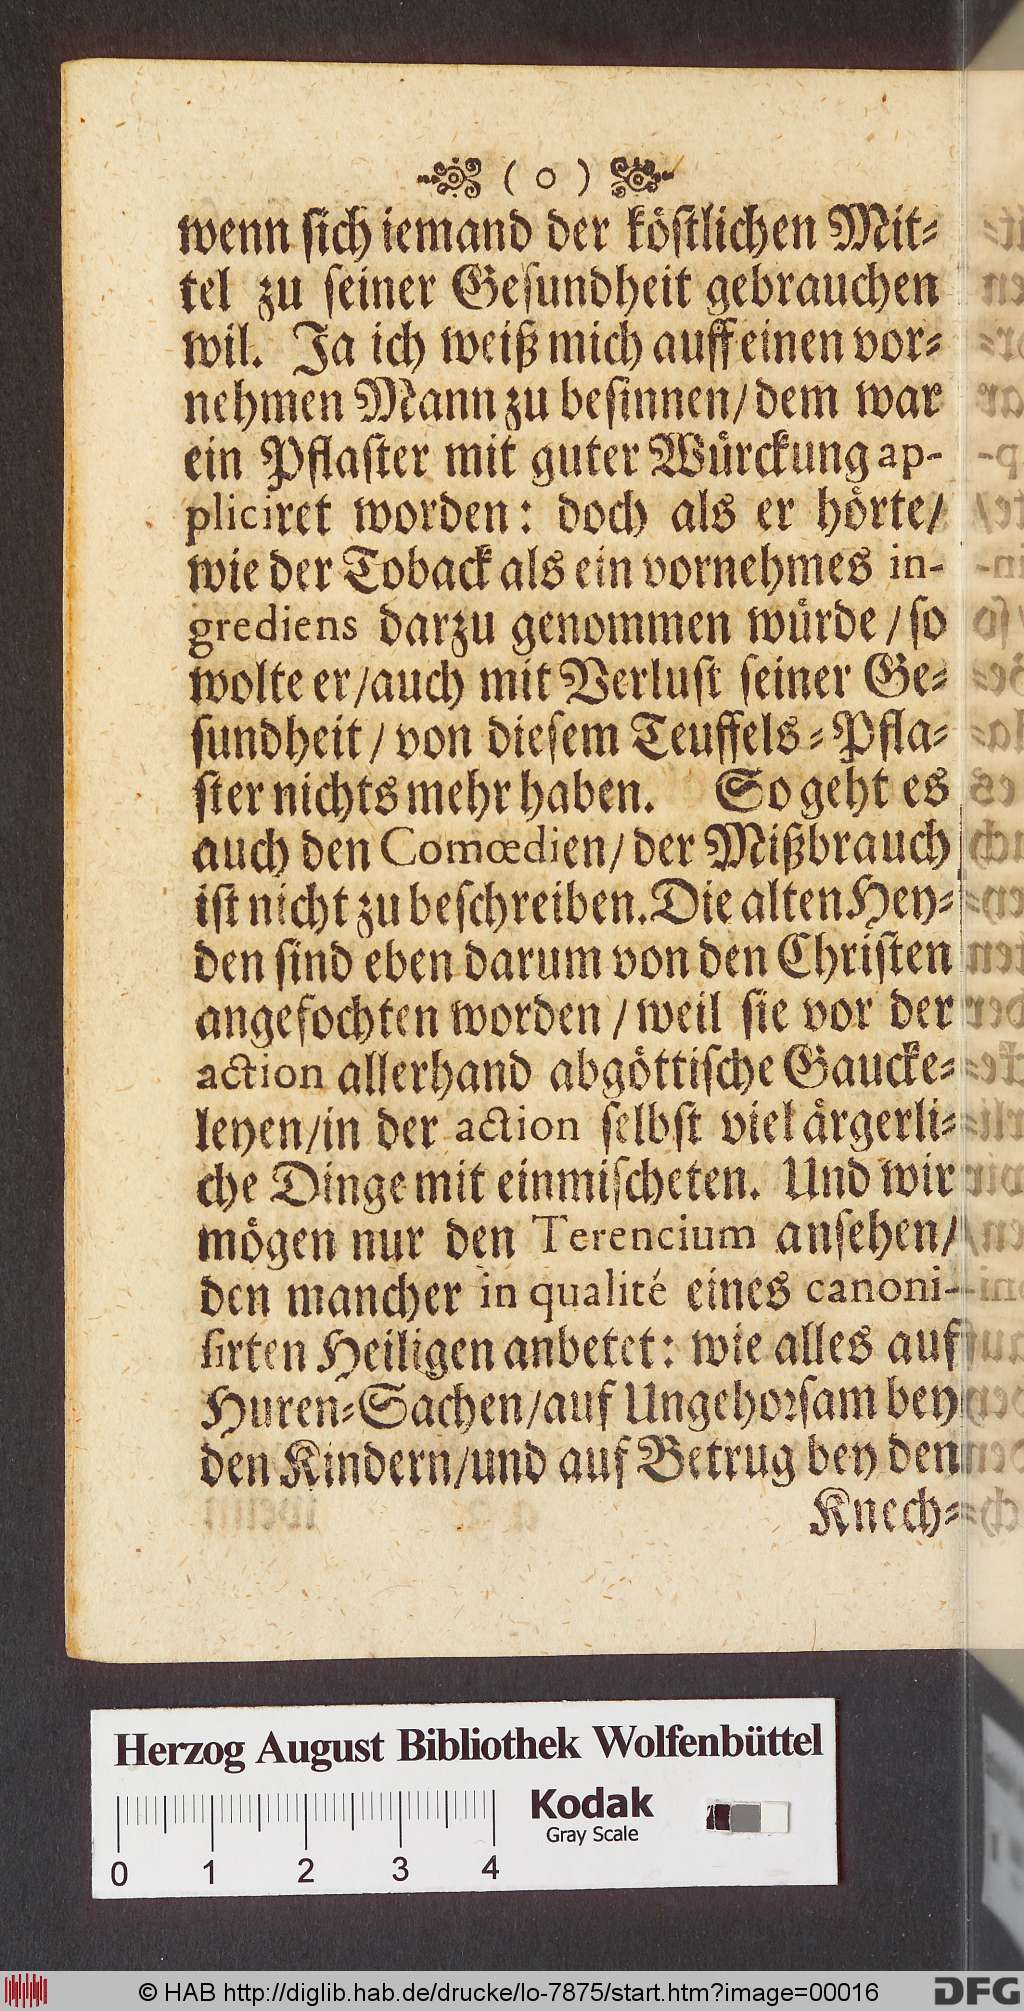 ( o )
wenn sich iemand der köstlichen Mit-
tel zu seiner Gesundheit gebrauchen
wil. Ja ich weiß mich auff einen vor-
nehmen Mann zu besinnen/ dem war
ein Pflaster mit guter Würckung ap-
pliciret worden: doch als er hörte/
wie der Toback als ein vornehmes in-
grediens darzu genommen würde / so
wolte er/auch mit Verlust seiner Ge-
sundheit / von diesem Teuffels-Pfla-
ster nichts mehr haben. So geht es
auch den Comœdien/ der Mißbrauch
ist nicht zu beschreiben. Die alten Hey-
den sind eben darum von den Christen
angefochten worden / weil sie vor der
action allerhand abgöttische Gaucke-
leyen/in der action selbst viel ärgerli-
che Dinge mit einmischeten. Und wir
mögen nur den Terencium ansehen/
den mancher in qualité eines canoni-
sirten Heiligen anbetet: wie alles auf
Huren-Sachen/auf Ungehorsam bey
den Kindern/und auf Betrug bey den
Knech-
Herzog August Bibliothek Wolfenbüttel
Kodak
Gray Scale
0 1 2 3 4
© HAB http://diglib.hab.de/drucke/lo-7875/start.htm?image=00016
DFG